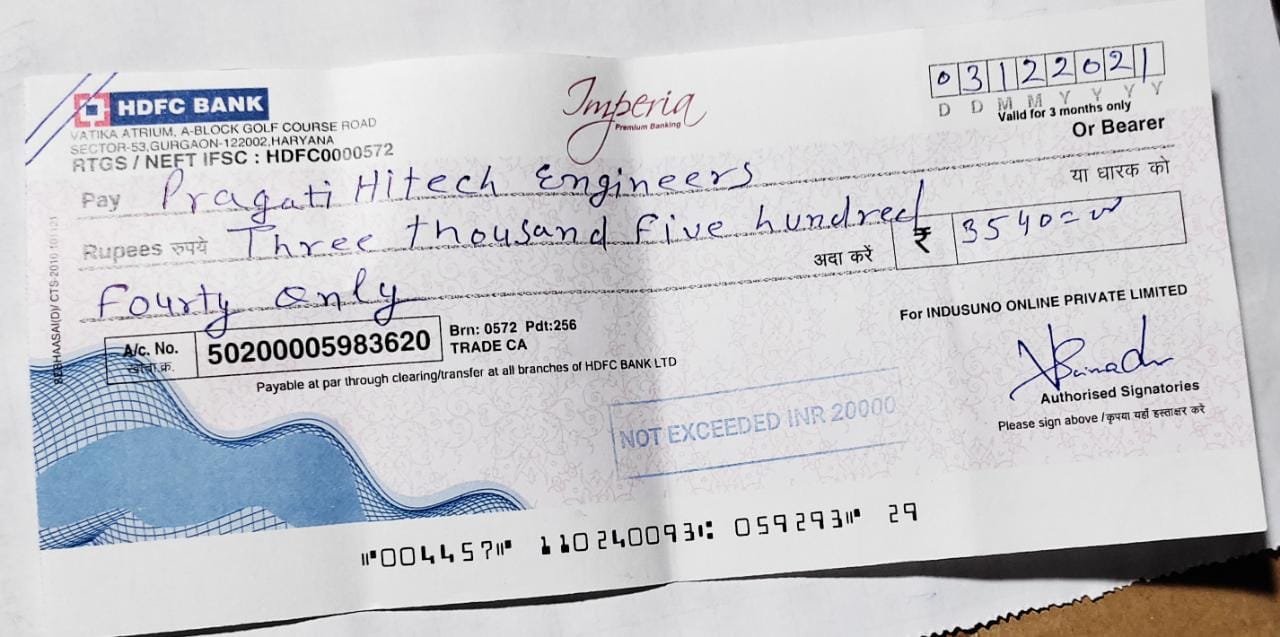 HDFC BANK
VATIKA ATRIUM, A-BLOCK GOLF COURSE ROAD
SECTOR-53,GURGAON-122002,HARYANA
RTGS / NEFT IFSC : HDFC0000572
Imperia
Premium Banking
03122021
D D M M Y Y Y Y
Valid for 3 months only
Or Bearer
या धारक को
Pay Pragati Hitech Engineers
Rupees रुपये Three thousand Five hundred
अदा करें ₹ 3540=
Fourty Only
A/c. No. 50200005983620
खाता.क्र.
Brn: 0572 Pdt:256
TRADE CA
Payable at par through clearing/transfer at all branches of HDFC BANK LTD
For INDUSUNO ONLINE PRIVATE LIMITED
Authorised Signatories
Please sign above / कृपया यहाँ हस्ताक्षर करे
NOT EXCEEDED INR 20000
⑈004457⑈ 110240093⑆ 059293⑈ 29